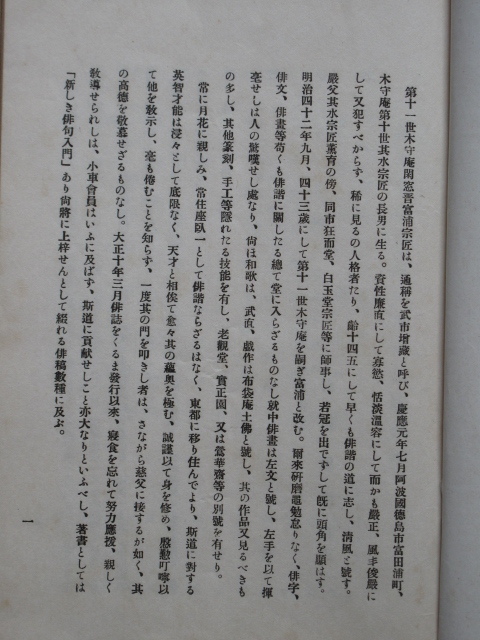 第十一世木守庵閑窓晋富浦宗匠は、通稱を武市增藏と呼び、慶應元年七月阿波國德島市富田浦町、
木守庵第十世其水宗匠の長男に生る。資性廉直にして寡慾、恬淡溫容にして而かも嚴正、風丰俊嚴に
して又犯すべからず、稀に見るの人格者たり、齡十四五にして早くも俳諧の道に志し、淸風と號す。
嚴父其水宗匠薰育の傍、同市狂而堂、白玉堂宗匠等に師事し、若冠を出でずして旣に頭角を顯はす。
明治四十二年九月、四十三歲にして第十一世木守庵を嗣ぎ富浦と改む。爾來硏磨黽勉怠りなく、俳字、
俳文、俳畫等苟くも俳諧に關したる總て堂に入らざるものなし就中俳畫は左文と號し、左手を以て揮
毫せしは人の驚嘆せし處なり、尙ほ和歌は、武直、戲作は布袋庵土佛と號し、其の作品又見るべきも
の多し、其他篆刻、手工等隱れたる技能を有し、老觀堂、賞正園、又は鶯華齋等の別號を有せり。
常に月花に親しみ、常住座臥一として俳諧ならざるはなく、東都に移り住んでより、斯道に對する
英智才能は浸々として底限なく、天才と相俟て愈々其の蘊奧を極む、誠謹以て身を修め、慇懃叮嚀以
て他を敎示し、毫も倦むことを知らず、一度其の門を叩きし者は、さながら慈父に接するが如く、其
の高德を敬慕せざるものなし。大正十年三月俳誌をくるま發行以來、寢食を忘れて努力應援、親しく
敎導せられしは、小車會員はいふに及ばず、斯道に貢献せしこと亦大なりといふべし、著書としては
「新しき俳句入門」あり尙將に上梓せんとして綴れる俳稿數種に及ぶ。
一